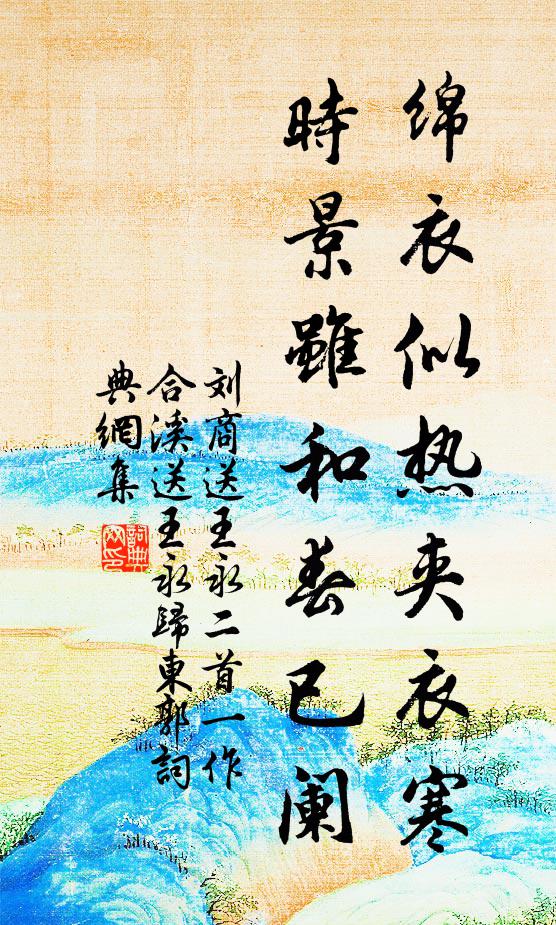 绵衣似热夹衣寒
時景雖和春已阑
刘商送王永二首一作
合溪送王永歸東郭詞
典網集
詞典網印